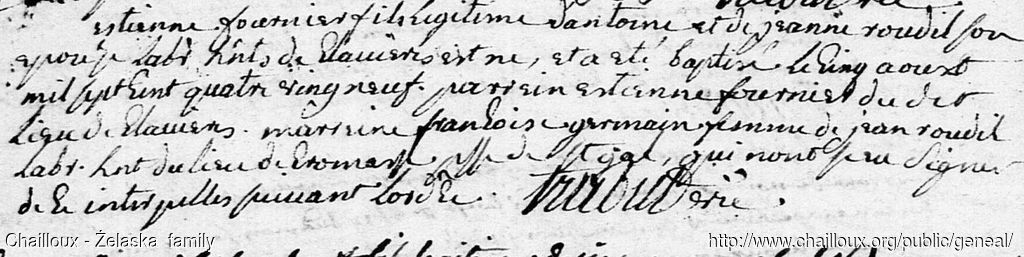 estienne fournier fils legitime d'antoine et de jeanne roudil son
epouse labr. hnts de Clauiers est ne, et a eté baptisé le cinq aoust
mil sept cent quatre vingt neuf. parrein estienne fournier du dit
lieu de Clauiers. marreine francoise germain femme de jean roudil
labr. hnt du lieu de psse de st. qui n'ont sçeu signer
de ce interpelles suivant lordce.
Chailloux - Żelaska family
http://www.chailloux.org/public/geneal/